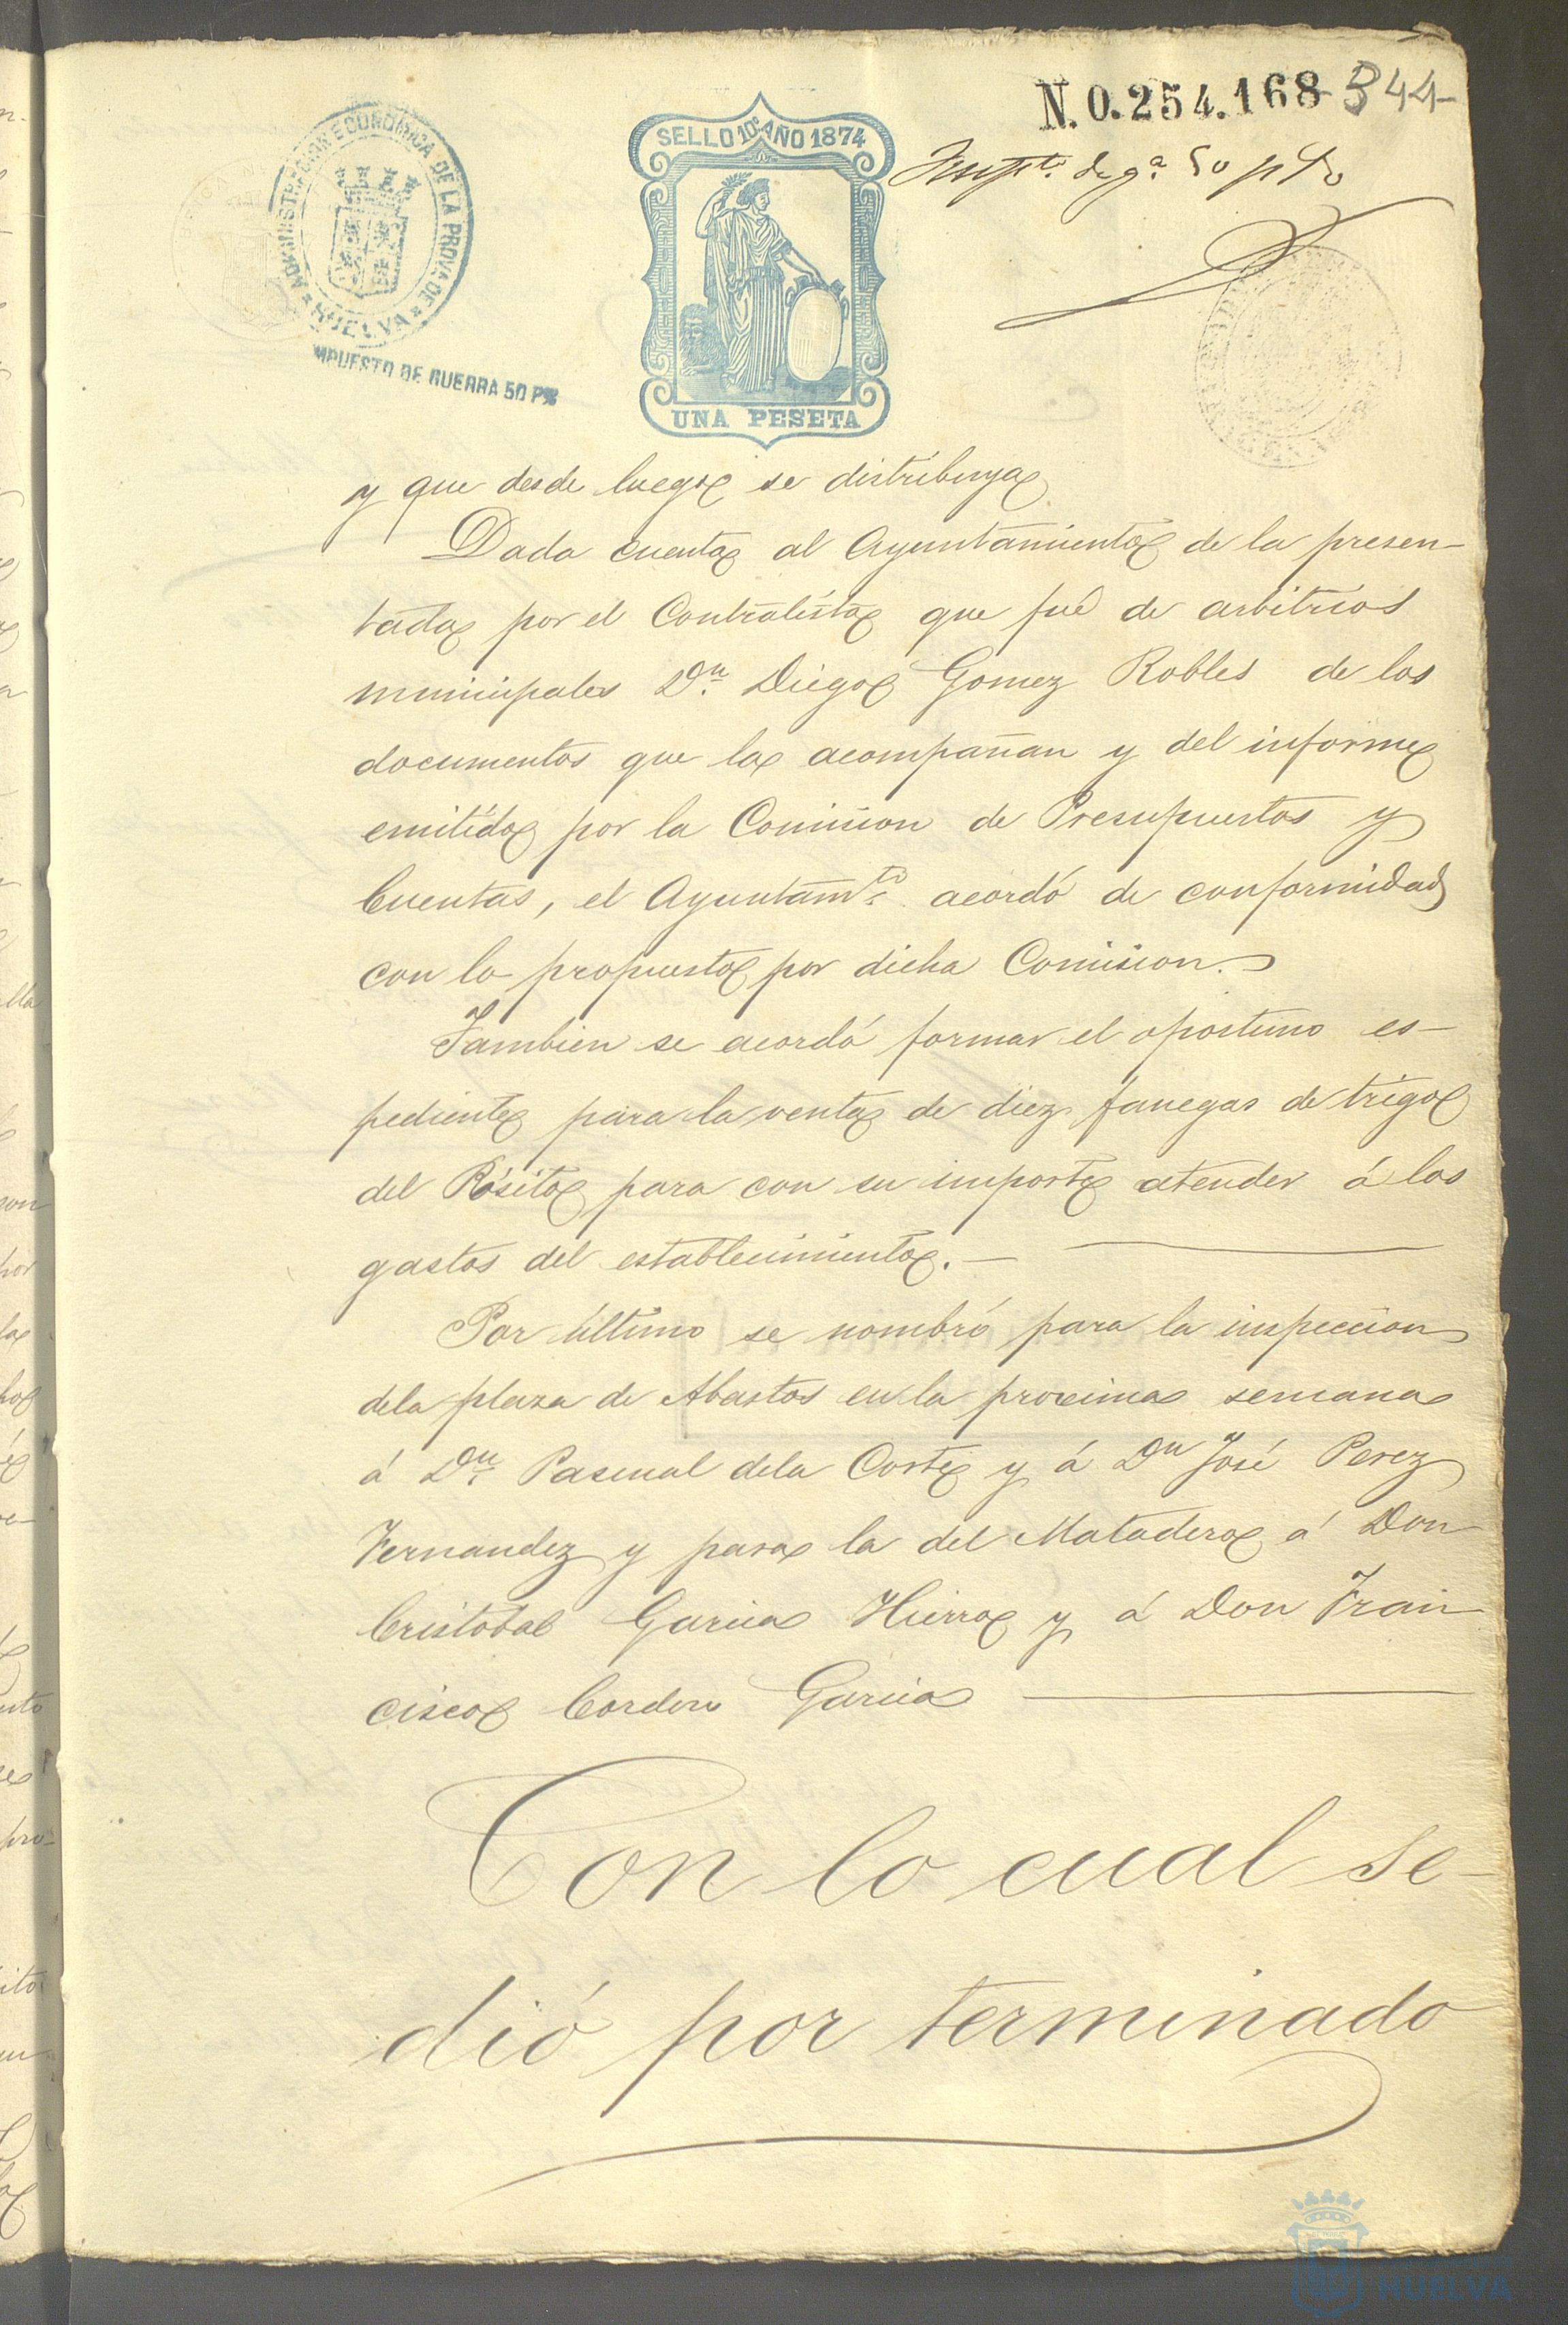 N. 0.254.168 344
Impto. de ga. 50 p%
SELLO 10º AÑO 1874
ADMINISTRACION ECONOMICA DE LA PROVA DE
HUELVA
MPUESTO DE GUERRA 50 P%
UNA PESETA
y que desde luego se distribuya
Dada cuenta al Ayuntamiento de la presen-
tada por el Contratista que fué de arbitrios
municipales Dn. Diego Gomez Robles de los
documentos que la acompañan y del informe
emitido por la Comision de Presupuestos y
Cuentas, el Ayuntamto. acordó de conformidad
con lo propuesto por dicha Comision.
Tambien se acordó formar el oportuno es-
pediente para la venta de diez fanegas de trigo
del Pósito para con su importe atender á los
gastos del establecimiento. —
Por último se nombró para la inspeccion
dela plaza de Abastos en la proxima semana
á Dn. Pascual dela Corte y á Dn José Perez
Fernandez y para la del Matadero á Don
Cristobal Garcia Hierro y á Don Fran
cisco Cordero Garcia
Con lo cual se-
dió por terminado
HUELVA